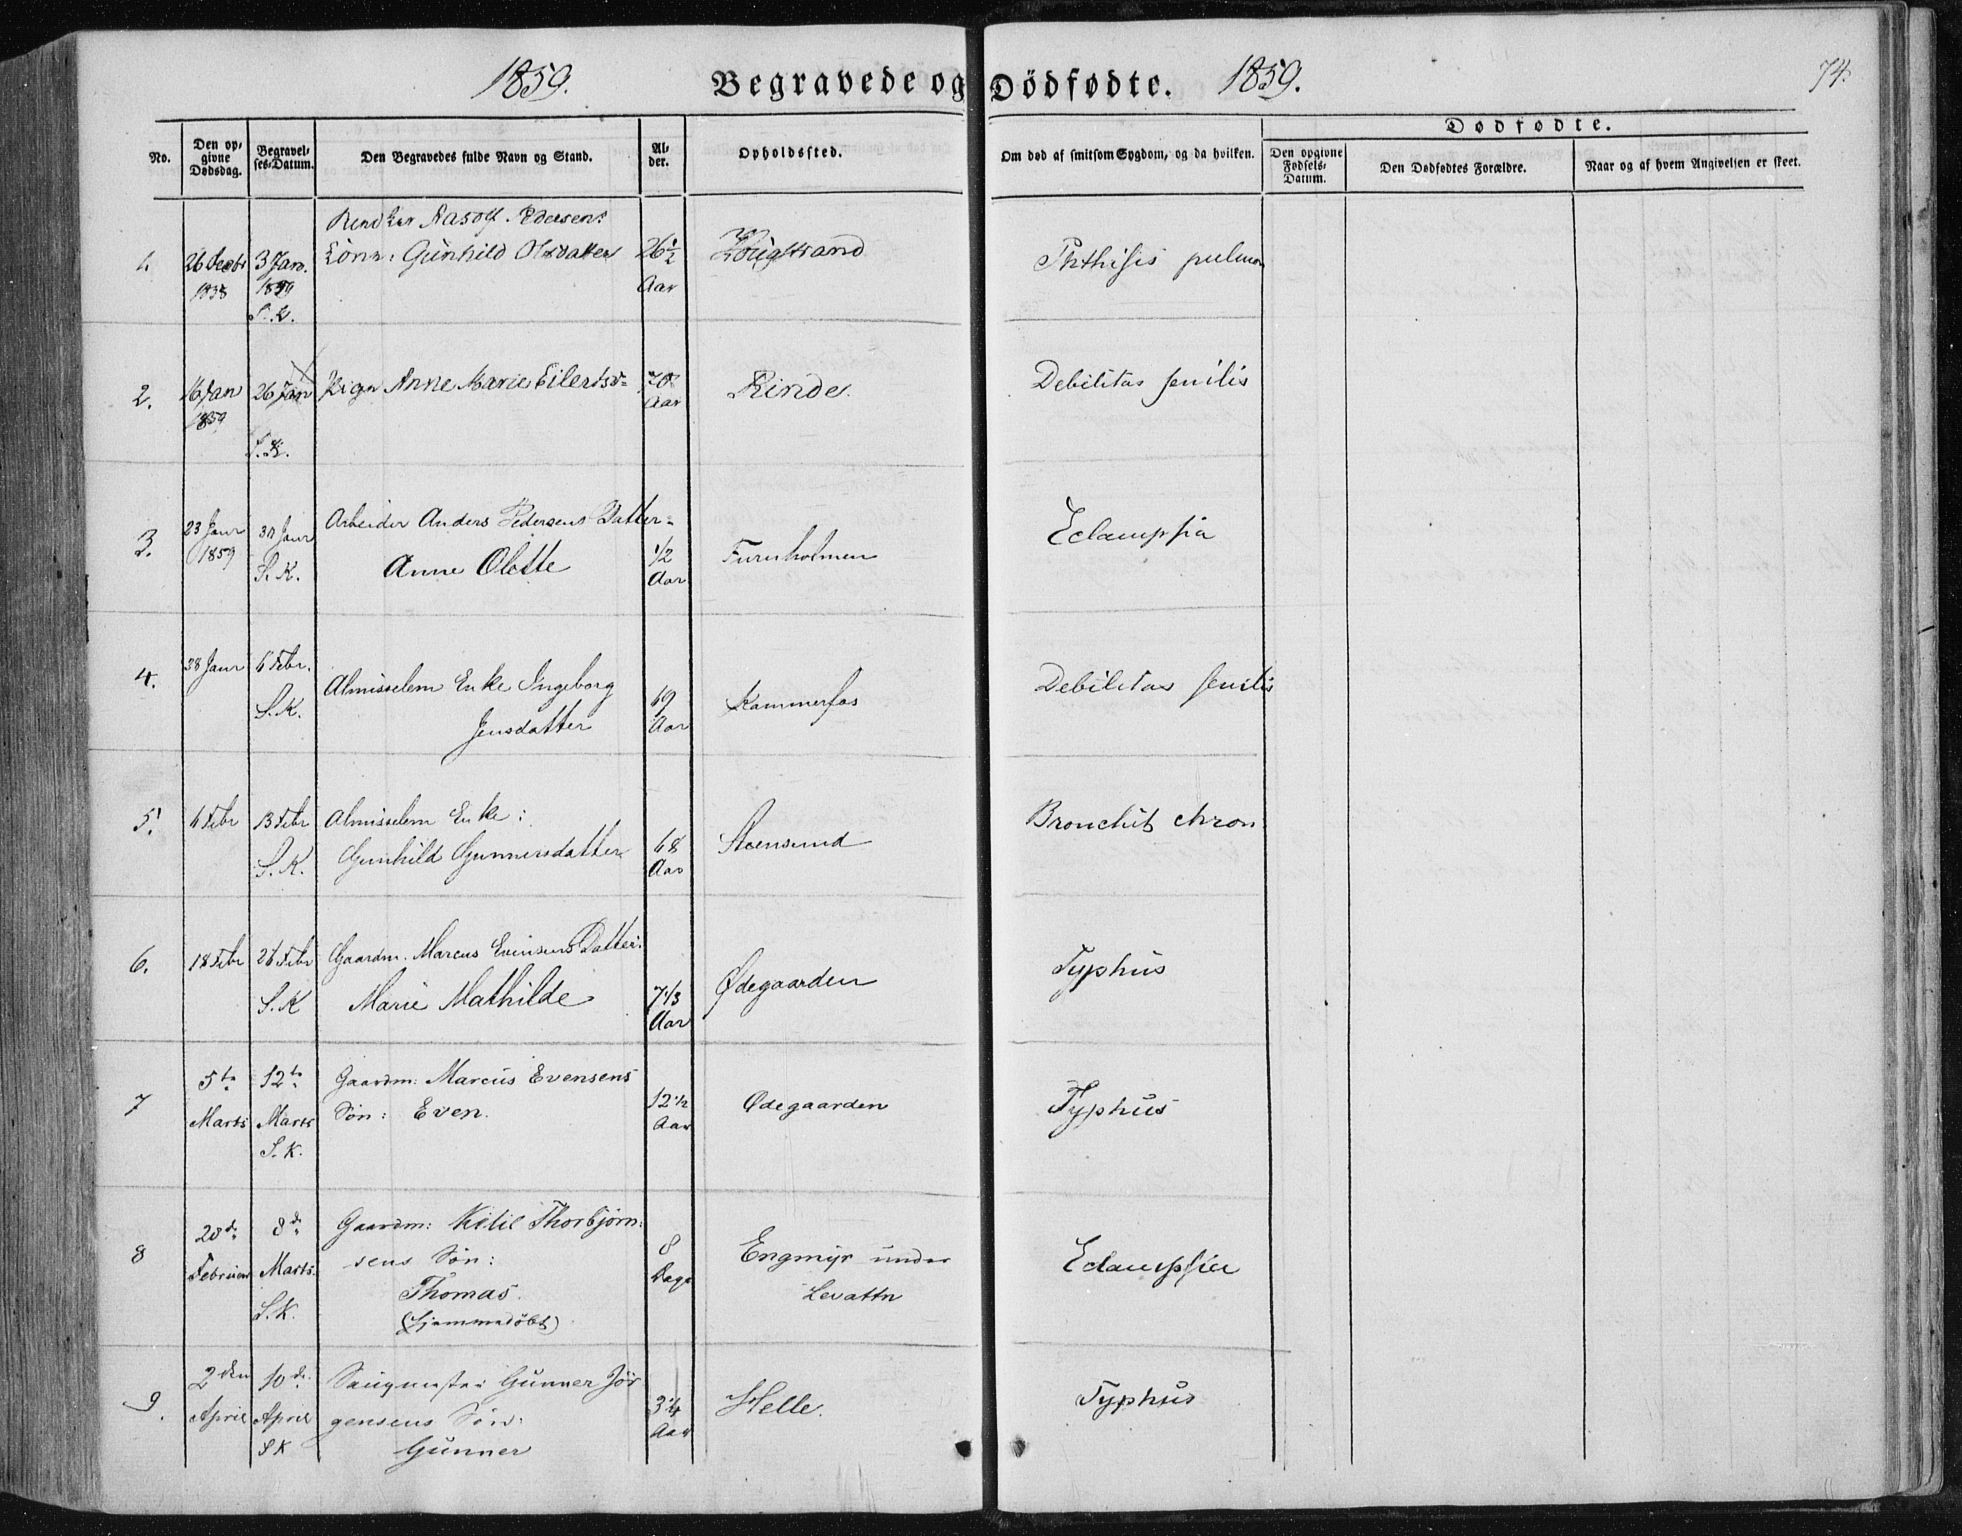 1859. Begravede og Dödfødte. 1859. 74.
Dødfødte.
No. Den opgivne Dødsdag. Begravelses-Datum. Den Begravedes fulde Navn og Stand. Alder. Opholdssted. Om død af smitsom Sygdom, og da hvilken. Den opgivne Fødsels-Datum. Den Dødfødtes Forældre. Naar og af hvem Angivelsen er skeet.
1. 26 Decbr 3 Jan. Gunhild Olsdatter 26 1/2 Phthisis pulmon
1858 1859 Aar
S.K.
2. 16 Jan 26 Jan Pige Anne Marie Eilertsd= 70 Rinde. Debilitas senilis
1859 Aar
S.K.
3. 23 Janr 30 Janr Arbeider Anders Pedersens Datter= Eclampsia
1859 S.K. Anne Olette 1/2 Furuholmen
Aar
4. 28 Janr 6 Febr. Almisselem Enke Ingeborg 69 Kammerfos Debilitas senilis
S.K. Jensdatter Aar
5. 6 Febr 13 Febr Almisselem Enke: Bronchit chron
S.K. Gunhild Gunnersdatter 68 Steensund
Aar
6. 18 Febr 26 Febr Gaardm. Marcus Evensens Datter. Typhus
S.K Marie Mathilde 7 1/3 Ødegaarden
Aar
7 5te 12te Gaardm: Marcus Evensens 12 1/2 Ødegaarden Typhus
Marts Marts Søn: Even. Aar
S.K.
8 28de 8de Gaardm: Kitil Thorbjørn= 8 Engmyr under Eclampsia
Februar Marts. sens Søn: Dage Levattn
S.K. Thomas.
(Hjemmedöbt)
9. 2den 10de Saugmester Gunner Jör Helle. Typhus
April April gensens Søn: 3 1/4
S K Gunner Aar